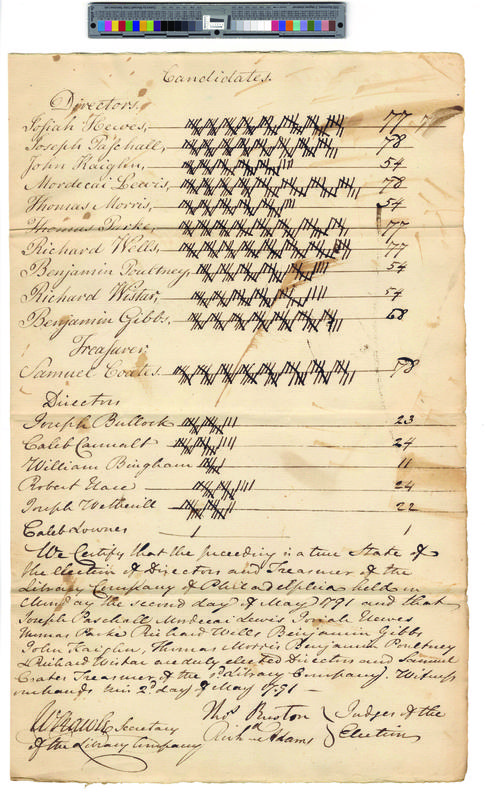 Candidates.
Directors.
Josiah Hewes, 77
Joseph Paschall, 78
John Kaighn, 54
Mordecai Lewis, 78
Thomas Morris, 54
Thomas Parke, 77
Richard Wells, 77
Benjamin Poultney, 54
Richard Wistar, 54
Benjamin Gibbs, 68
Treasurer,
Samuel Coates. 78
Directors
Joseph Bullock 23
Caleb Carmalt 24
William Bingham 11
Robert 24
Joseph Wetherill 22
Caleb Lownes 1 1
We Certify that the preceeding is a true State of
the election of Directors and Treasurer of the
Library Company of Philadelphia held on
Monday the second day of May 1791 and that
Joseph Paschall Mordecai Lewis Josiah Hewes
Thomas Parke Richard Wells Benjamin Gibbs
John Kaighn, Thomas Morris Benjamin Poultney
& Richard Wistar are duly elected Directors and Samuel
Coates Treasurer of the sd. Library Company. Witness
our hands this 2d day of May 1791 —
W Rawle Secretary
of the Library Company
Thos. Ruston
Richd. Adams
Judges of the
Election